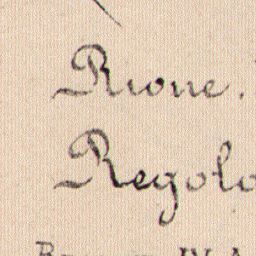 Rione.
Regolo